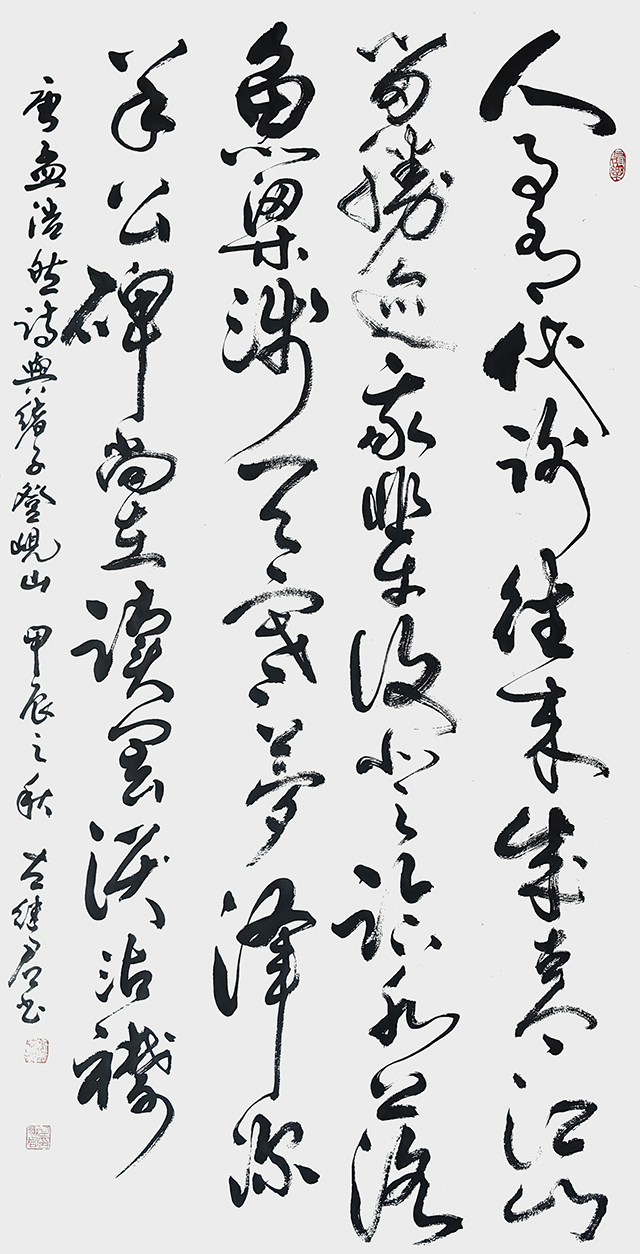 人事有代謝往來成古今江山
留勝迹我輩復登臨水落
魚梁淺天寒夢澤深
羊公碑尚在讀罷淚沾襟
唐孟浩然詩與諸子登峴山 甲辰之秋 继君书